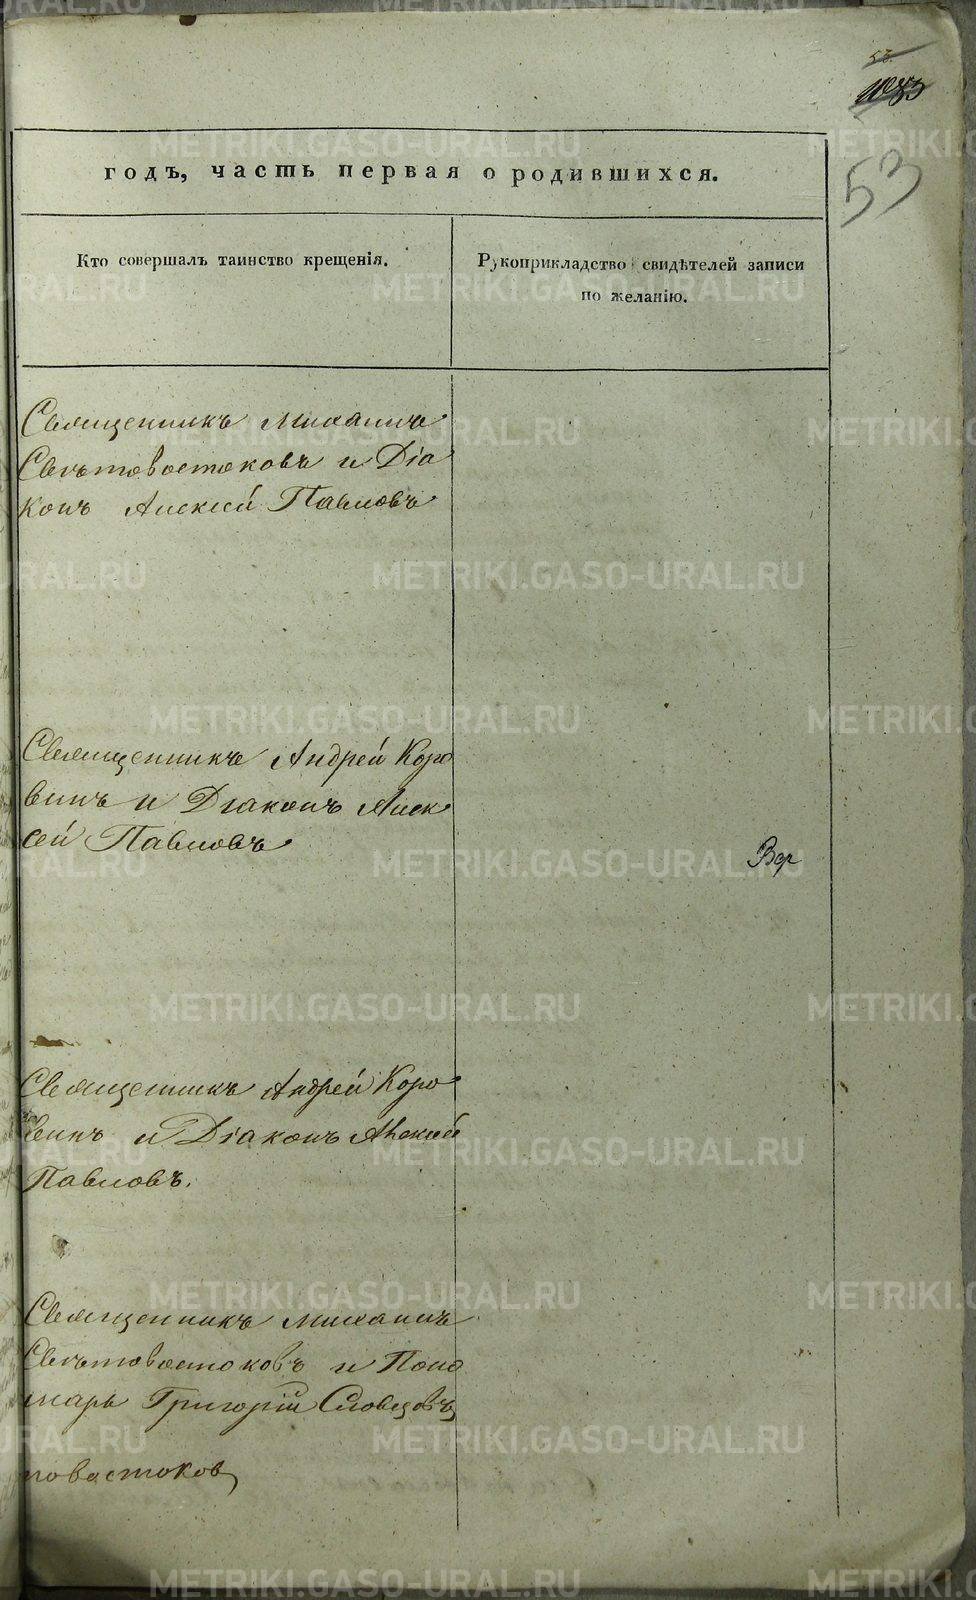 53.
1083
53
годъ, часть первая о родившихся.
Кто совершалъ таинство крещенія.
Рукоприкладство свидѣтелей записи
по желанію.
Священникъ Михаилъ
Свѣтовостоковъ и Діа
конъ Алексѣй Павловъ
Священникъ Андрей Коро
винъ и Діаконъ Алек
сѣй Павловъ
Священникъ Андрей Коро
винъ и Діаконъ Алексѣй
Павловъ.
Священникъ Михаилъ
Свѣтовостоковъ и Поно
марь Григорій Словцовъ
товостоковъ
METRIKI.GASO-URAL.RU